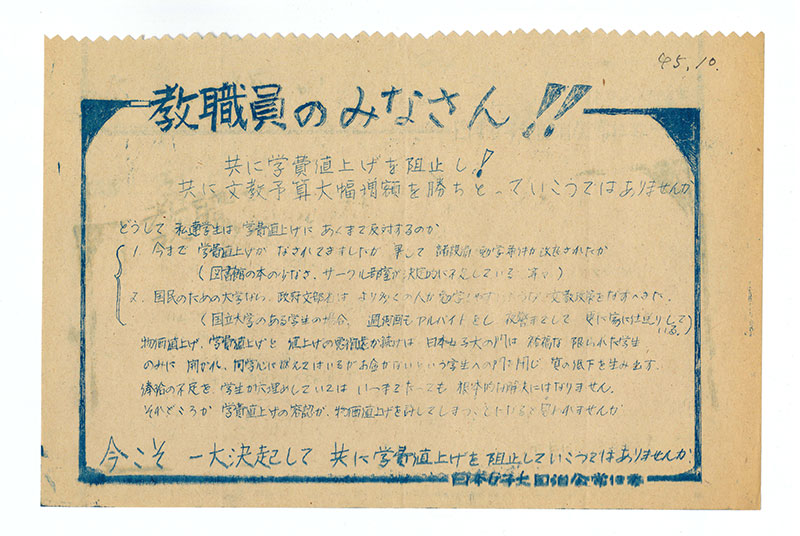 45.10.
教職員のみなさん!!
共に学費値上げを阻止し!
共に文教予算大幅増額を勝ちとっていこうではありませんか
どうして私達学生は学費値上げにあくまで反対するのか
1. 今まで学費値上げがなされてきましたが 果して 諸設備 勉学条件が改良されたか
(図書館の本の少なさ、サークル部室が決定的に不足している 等々)
2. 国民のための大学なら、政府文部省は より多くの人が勉学しやすいような、文教政策をなすべきだ。
(国立大学のある学生の場合、週 もアルバイトをし 家に仕送りしている。)
物価値上げ、学費値上げと 値上げの悪循環が続けば 日本女子大の門は 裕福な 限られた学生
のみに 開かれ、向学心に燃えてはいるがお金がないという学生への門を閉じ 質の低下を生み出す。
俸給の不足を、学生が穴埋めしていては いつまでたっても 根本的な解決にはなりません。
それどころか 学費値上げの容認が、物価値上げを許してしまうことになると思われませんか
今こそ 一大決起して 共に学費値上げを阻止していこうではありませんか
日本女子大自治会常任委